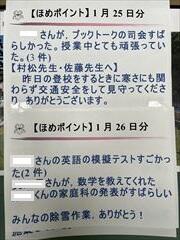 【ほめポイント】1月25日分
さんが、ブックトークの司会すば
らしかった。授業中とても頑張ってい
た。(3件)
【村松先生・佐藤先生へ】
昨日の登校をするときに寒さにも関
わらず交通安全をして見守ってくださ
り、ありがとうございます。
【ほめポイント】1月26日分
さんの英語の模擬テストすごかっ
た(2件)
さんが、数学を教えてくれた
くんの家庭科の発表がすばらしい
みんなの除雪作業、ありがとう!